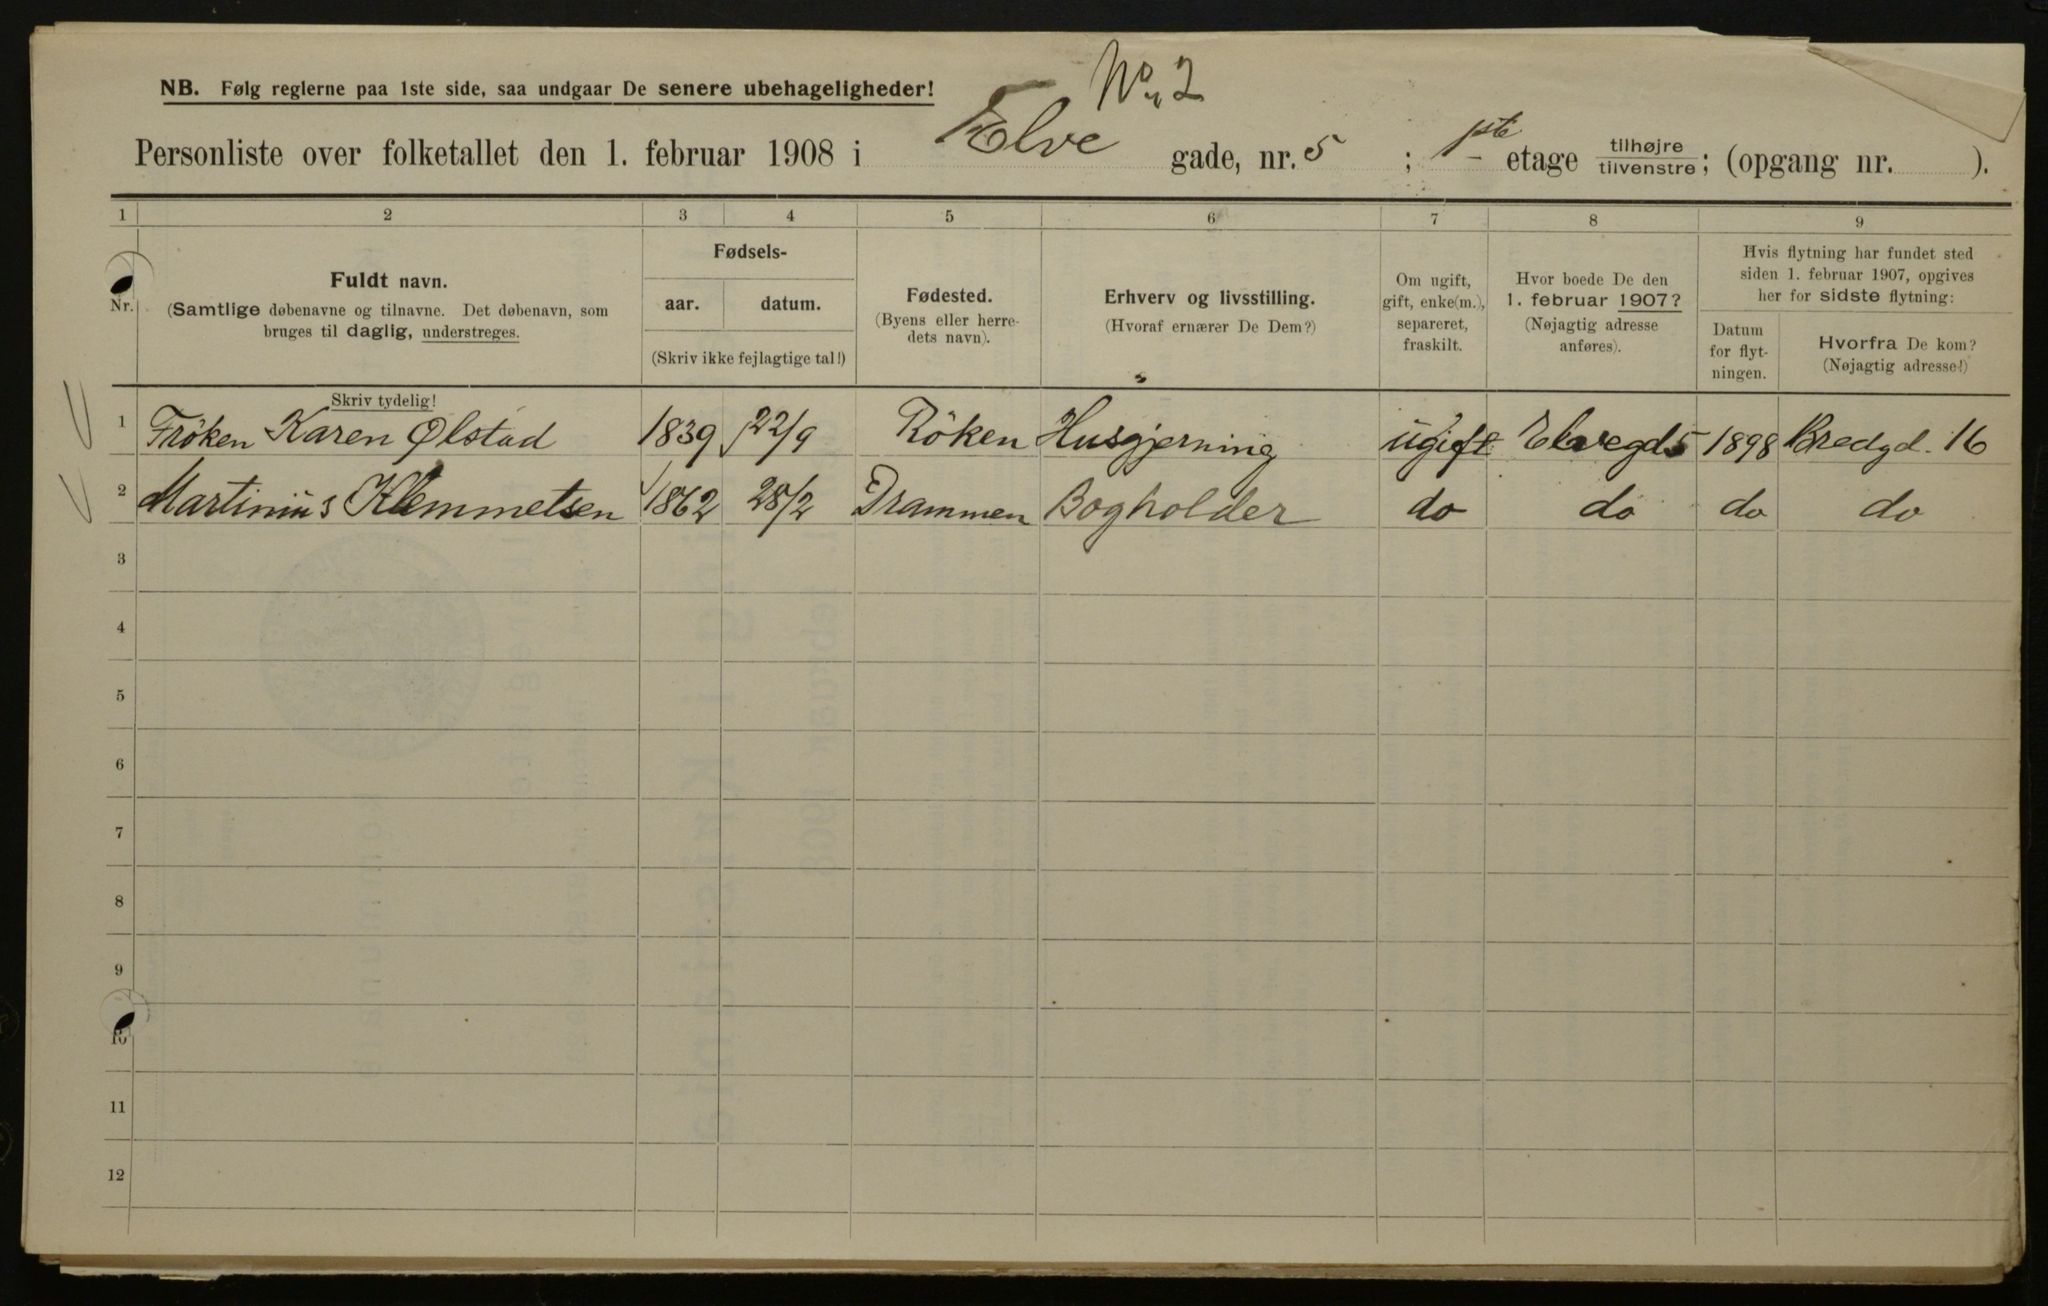 No. 2
NB. Følg reglerne paa 1ste side, saa undgaar De senere ubehageligheder!
Personliste over folketallet den 1. februar 1908 i Elve gade, nr. 5 ; 1ste etage tilhøjre/tilvenstre; (opgang nr. ).
1 2 3 4 5 6 7 8 9
Nr.
Fuldt navn.
(Samtlige døbenavne og tilnavne. Det døbenavn, som
bruges til daglig, understreges.
Fødsels-
aar. datum.
(Skriv ikke fejlagtige tal!)
Fødested.
(Byens eller herre-
dets navn).
Erhverv og livsstilling.
(Hvoraf ernærer De Dem?)
Om ugift,
gift, enke(m.),
separeret,
fraskilt.
Hvor boede De den
1. februar 1907?
(Nøjagtig adresse
anføres).
Hvis flytning har fundet sted
siden 1. februar 1907, opgives
her for sidste flytning:
Datum
for flyt-
ningen.
Hvorfra De kom?
(Nøjagtig adresse!)
Skriv tydelig!
1 Fröken Karen Ølstad 1839 22/9 Röken Husgjerning ugift Elvegd 5 1898 Bredgd. 16
2 Martinius Klemmetsen 1862 28/2 Drammen Bogholder do do do do
3
4
5
6
7
8
9
10
11
12